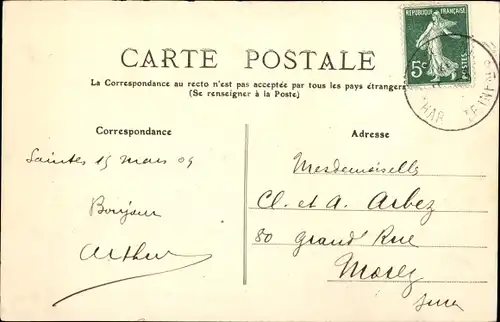 REPUBLIQUE FRANÇAISE
5c POSTES
CARTE POSTALE
La Correspondance au recto n'est pas acceptée par tous les pays étrangers
(Se renseigner à la Poste)
Correspondance
Adresse
Saintes 15 Mars 09
Bonjour
Arthur
Mesdemoiselle
Cl. et A. Arbez
80 Grand' Rue
Morez
Jura